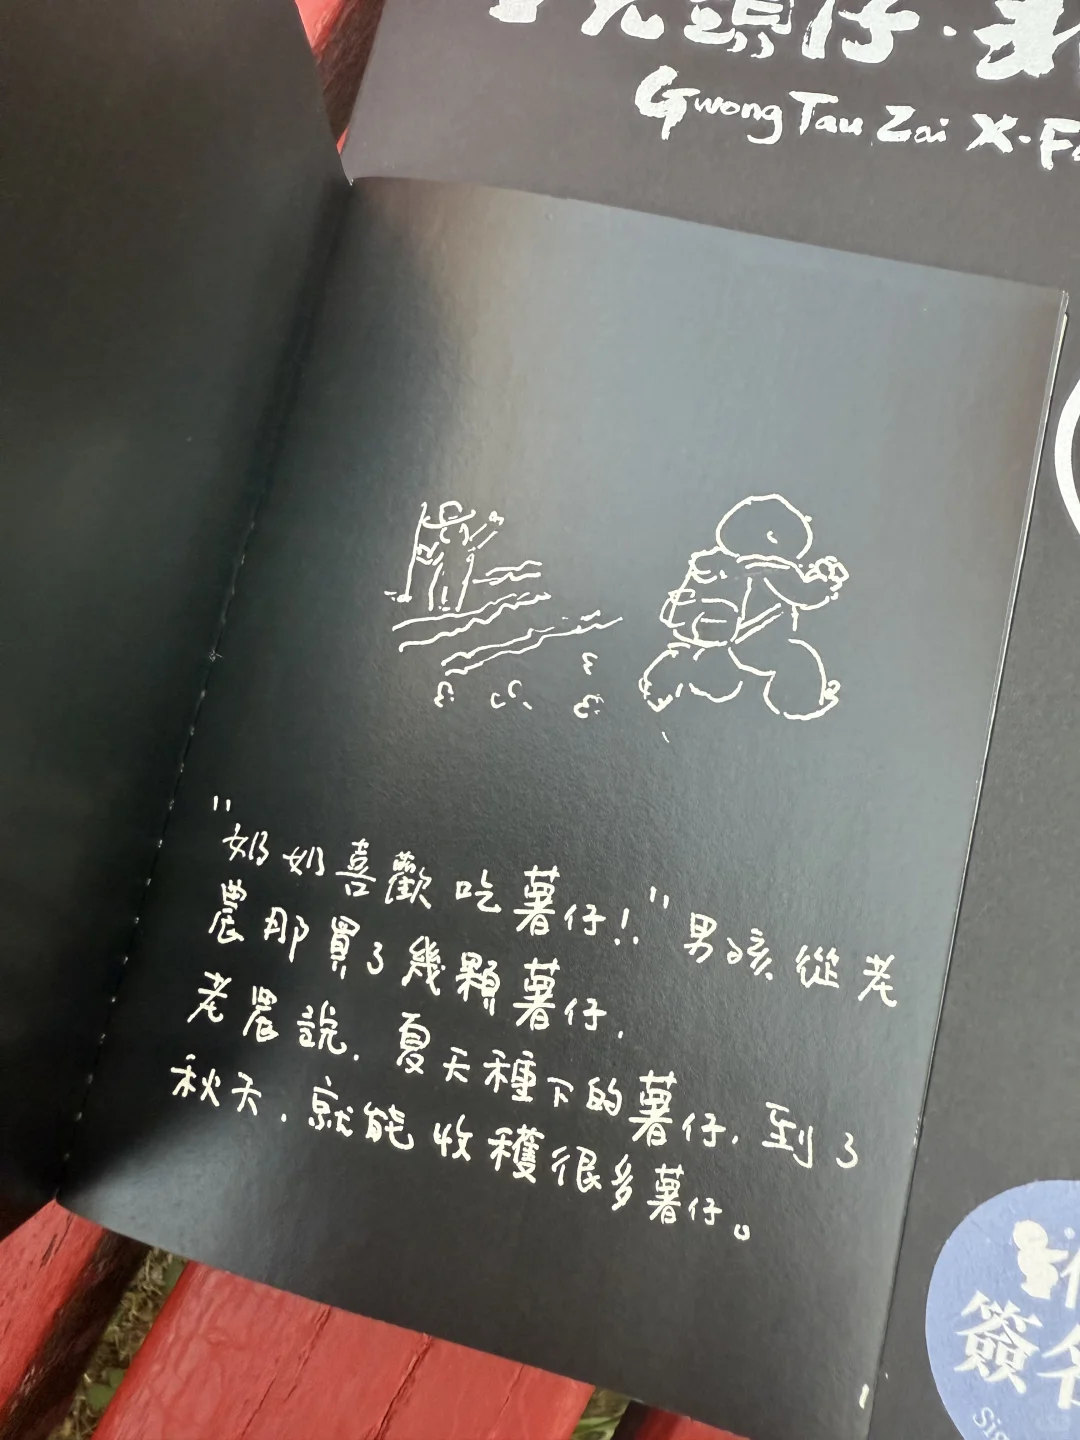 頭仔·
Gwong Tau Zai X·F
"奶奶喜歡吃薯仔!"男孩從老
農那買了幾顆薯仔.
老農說.夏天種下的薯仔.到了
秋天.就能收穫很多薯仔。
1
簽名
Sig